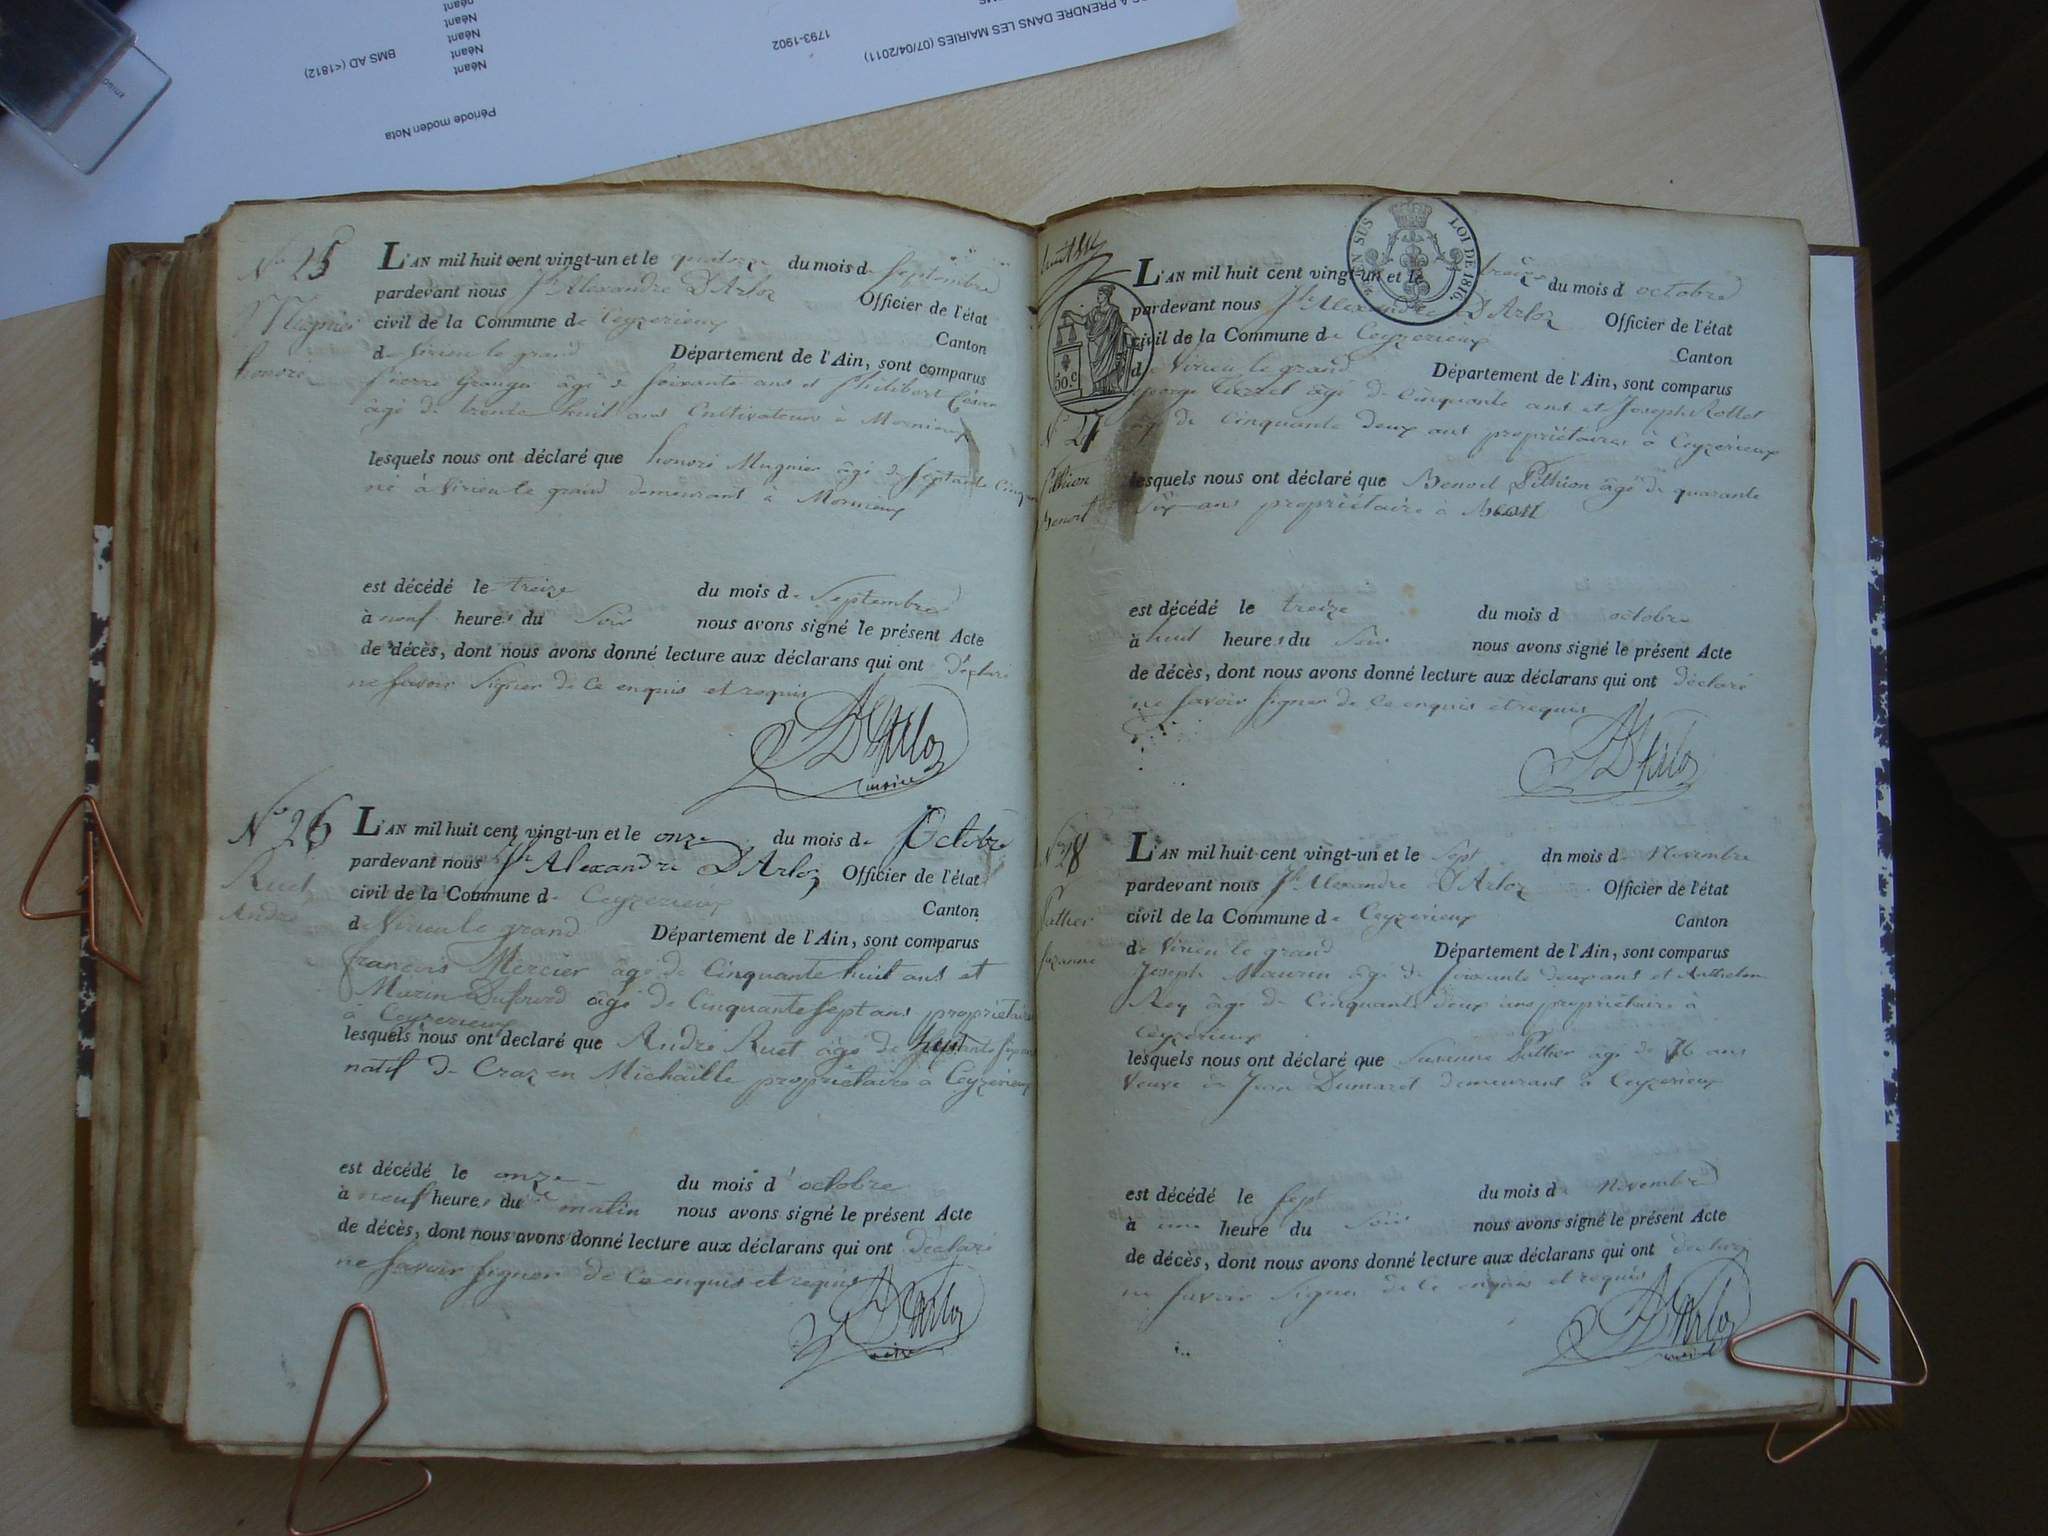 S A PRENDRE DANS LES MAIRIES (07/04/2011)
1793-1902
BMS AD (<1812)
Néant
Néant
Néant
Néant
Période moden Nota
No 25
Mugnier
honoré
L'AN mil huit cent vingt-un et le quatorze du mois de Septembre
pardevant nous Jh Alexandre D'Arloz Officier de l'état
civil de la Commune de Ceyzerieux Canton
de Virieu le grand Département de l'Ain, sont comparus
pierre Granger âgé de soixante ans et philibert César
âgé de trente huit ans Cultivateurs à Mornieux
lesquels nous ont déclaré que honoré Mugnier âgé de septante Cinq
né à Virieu le grand demeurant à Mornieux
est décédé le treize du mois de Septembre
à neuf heures du Soir nous avons signé le présent Acte
de décès, dont nous avons donné lecture aux déclarans qui ont déclaré
ne savoir Signer de Ce enquis et requis
D'Arloz
maire
No 26
Ruet
André
L'AN mil huit cent vingt-un et le onze du mois de Octobre
pardevant nous Jh Alexandre D'Arloz Officier de l'état
civil de la Commune de Ceyzerieux Canton
de Virieu le grand Département de l'Ain, sont comparus
françois Mercier âgé de Cinquante huit ans et
Marin Dufourd âgé de Cinquante Sept ans propriétaires
à Ceyzerieux
lesquels nous ont déclaré que André Ruet âgé de septante six ans
natif de Craz en Michaille propriétaire à Ceyzerieux
est décédé le onze du mois d'octobre
à neuf heures du matin nous avons signé le présent Acte
de décès, dont nous avons donné lecture aux déclarans qui ont déclaré
ne savoir signer de Ce enquis et requis
D'Arloz
maire
TIMB. EN SUS LOI DE 1816.
50.c
No 27
Pithion
Benoit
L'AN mil huit cent vingt-un et le treize du mois d octobre
pardevant nous Jh Alexandre D'Arloz Officier de l'état
civil de la Commune de Ceyzerieux Canton
de Virieu le grand Département de l'Ain, sont comparus
george âgé de Cinquante ans et Joseph Rollet
âgé de Cinquante deux ans propriétaires à Ceyzerieux
lesquels nous ont déclaré que Benoit Pithion âgé de quarante
six ans propriétaire à
est décédé le treize du mois d octobre
à huit heures du Soir nous avons signé le présent Acte
de décès, dont nous avons donné lecture aux déclarans qui ont déclaré
ne savoir signer de Ce enquis et requis
D'Arloz
No 28
Pathier
Suzanne
L'AN mil huit cent vingt-un et le Sept du mois de Novembre
pardevant nous Jh Alexandre D'Arloz Officier de l'état
civil de la Commune de Ceyzerieux Canton
de Virieu le grand Département de l'Ain, sont comparus
Joseph Maurin âgé de soixante deux ans et Anthelme
Rey âgé de Cinquante deux ans propriétaire à
Ceyzerieux
lesquels nous ont déclaré que Susanne Pathier âgé de 76 ans
Veuve de Jean Dumaret demeurant à Ceyzerieux
est décédé le sept du mois de Novembre
à une heure du Soir nous avons signé le présent Acte
de décès, dont nous avons donné lecture aux déclarans qui ont déclaré
ne savoir Signer de Ce enquis et requis
D'Arloz
maire